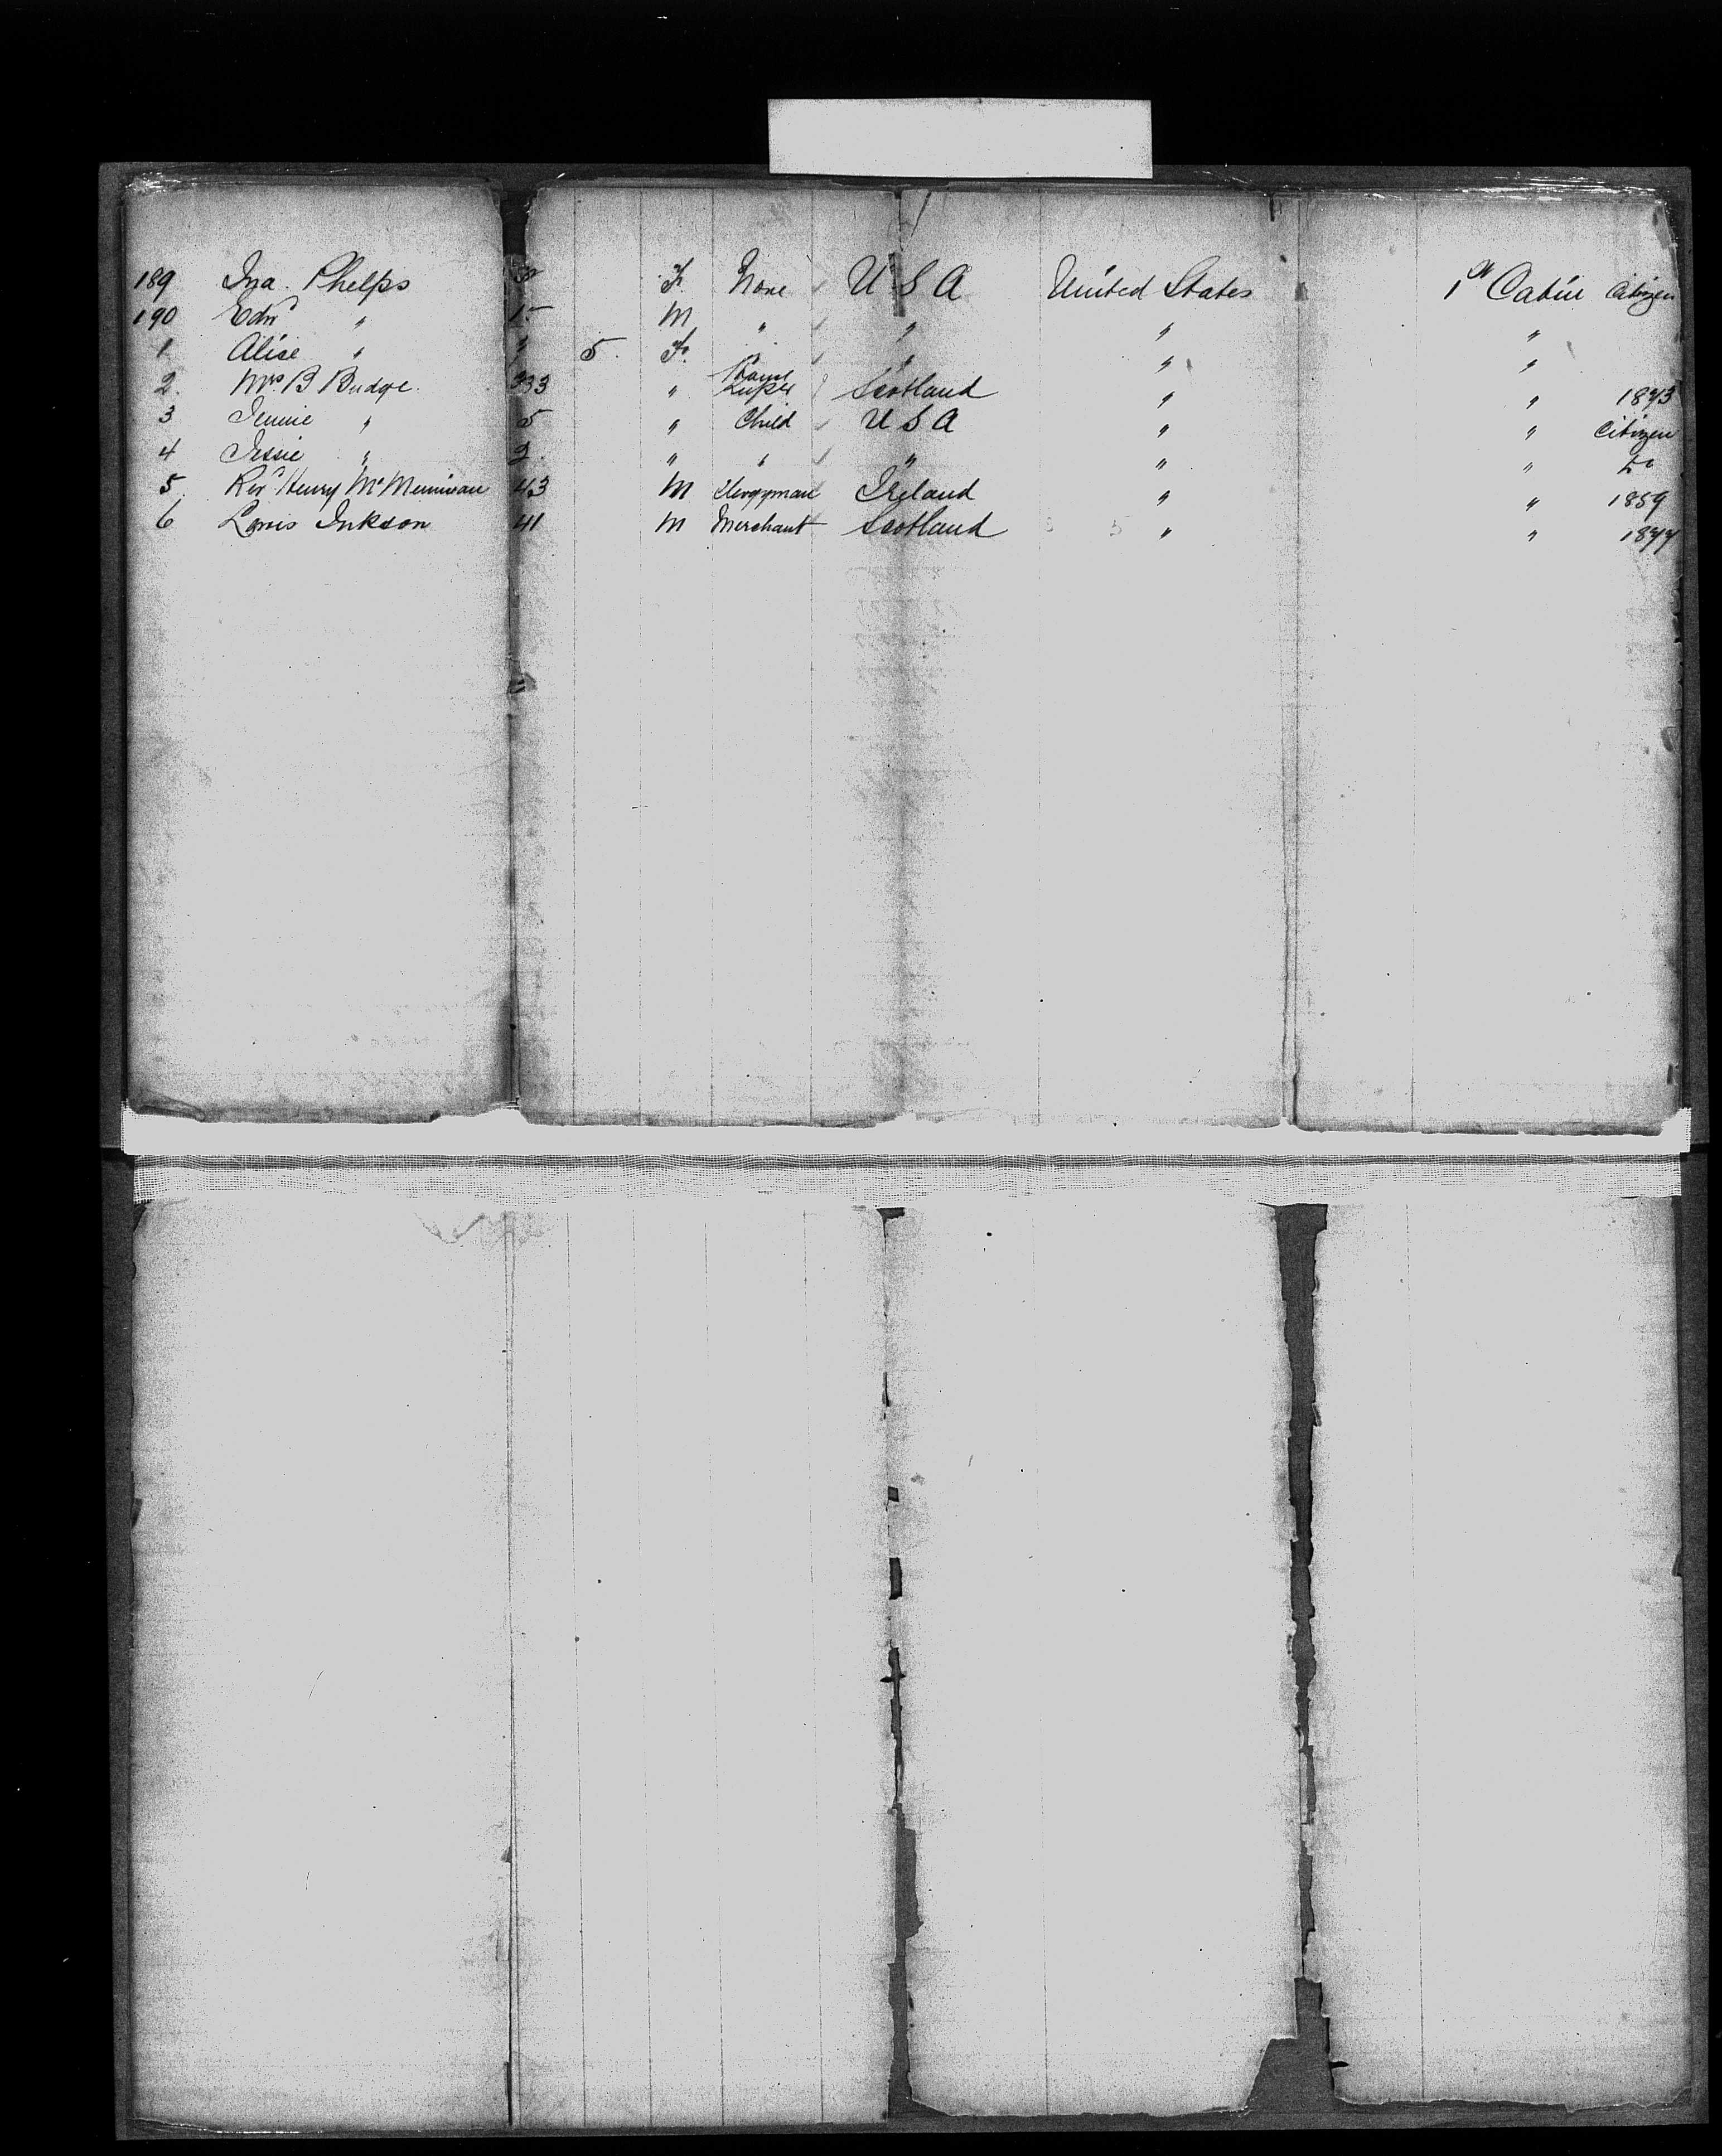 189 Ina Phelps F. None U S A United States 1st Cabin Citizen
190 Edw " 15 M " " " "
1 Alice " 5. F. " " " "
2. Mrs B Budge 33 " House Kuper Scotland " " 1873
3 Jennie " 5 " Child U S A " " Citizen
4 Jessie " 2. " " " " " Do
5. Revd Henry 43 M Clergyman Ireland " " 1859
6 Louis Inkson 41 M Merchant Scotland " " 1877